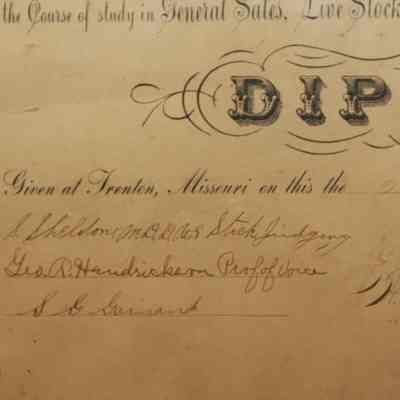 the Course of study in General Sales, Live Stock
DIP
Given at Trenton, Missouri on this the
S. Sheldon, Stock Judging
Geo. R. Handrickson Prof of Voice
S G